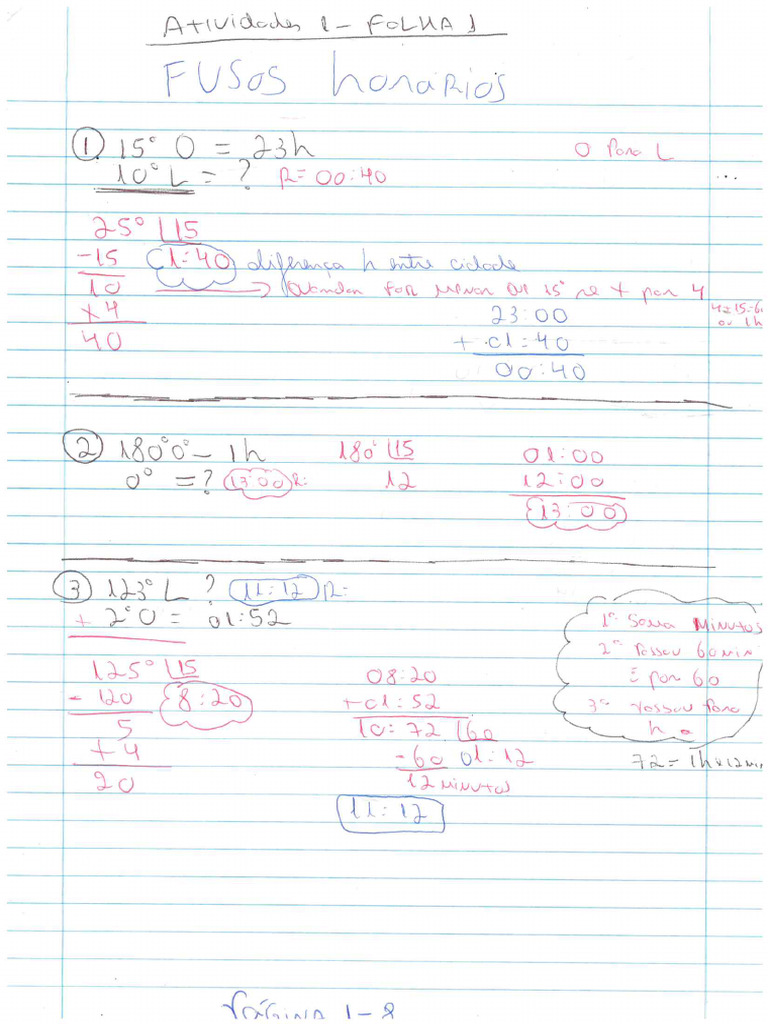 Atividades 1 - FOLHA 1
FUSOS horários
① 15° O = 23h
O para L
10° L = ? R = 00:40
...
25° | 15
-15 01:40 diferença h entre cidade
10 → Quando for menor 15° x por 4
x4 23:00 4x15=60
ou 1h
40 + 01:40
00:40
② 180°0° - 1h 180° | 15 01:00
0° = ? 13:00 R: 12 12:00
13:00
③ 123° L ? 11:12 R:
+ 2° O = 01:52
1° Soma Minutos
2° Passou 60 min
÷ por 60
3° Passou para
h.
72 = 1h e 12 mi
125° | 15 08:20
- 120 8:20 + 01:52
5 10:72 | 60
+ 4 - 60 01:12
20 12 minutos
11:12
PÁGINA 1-8